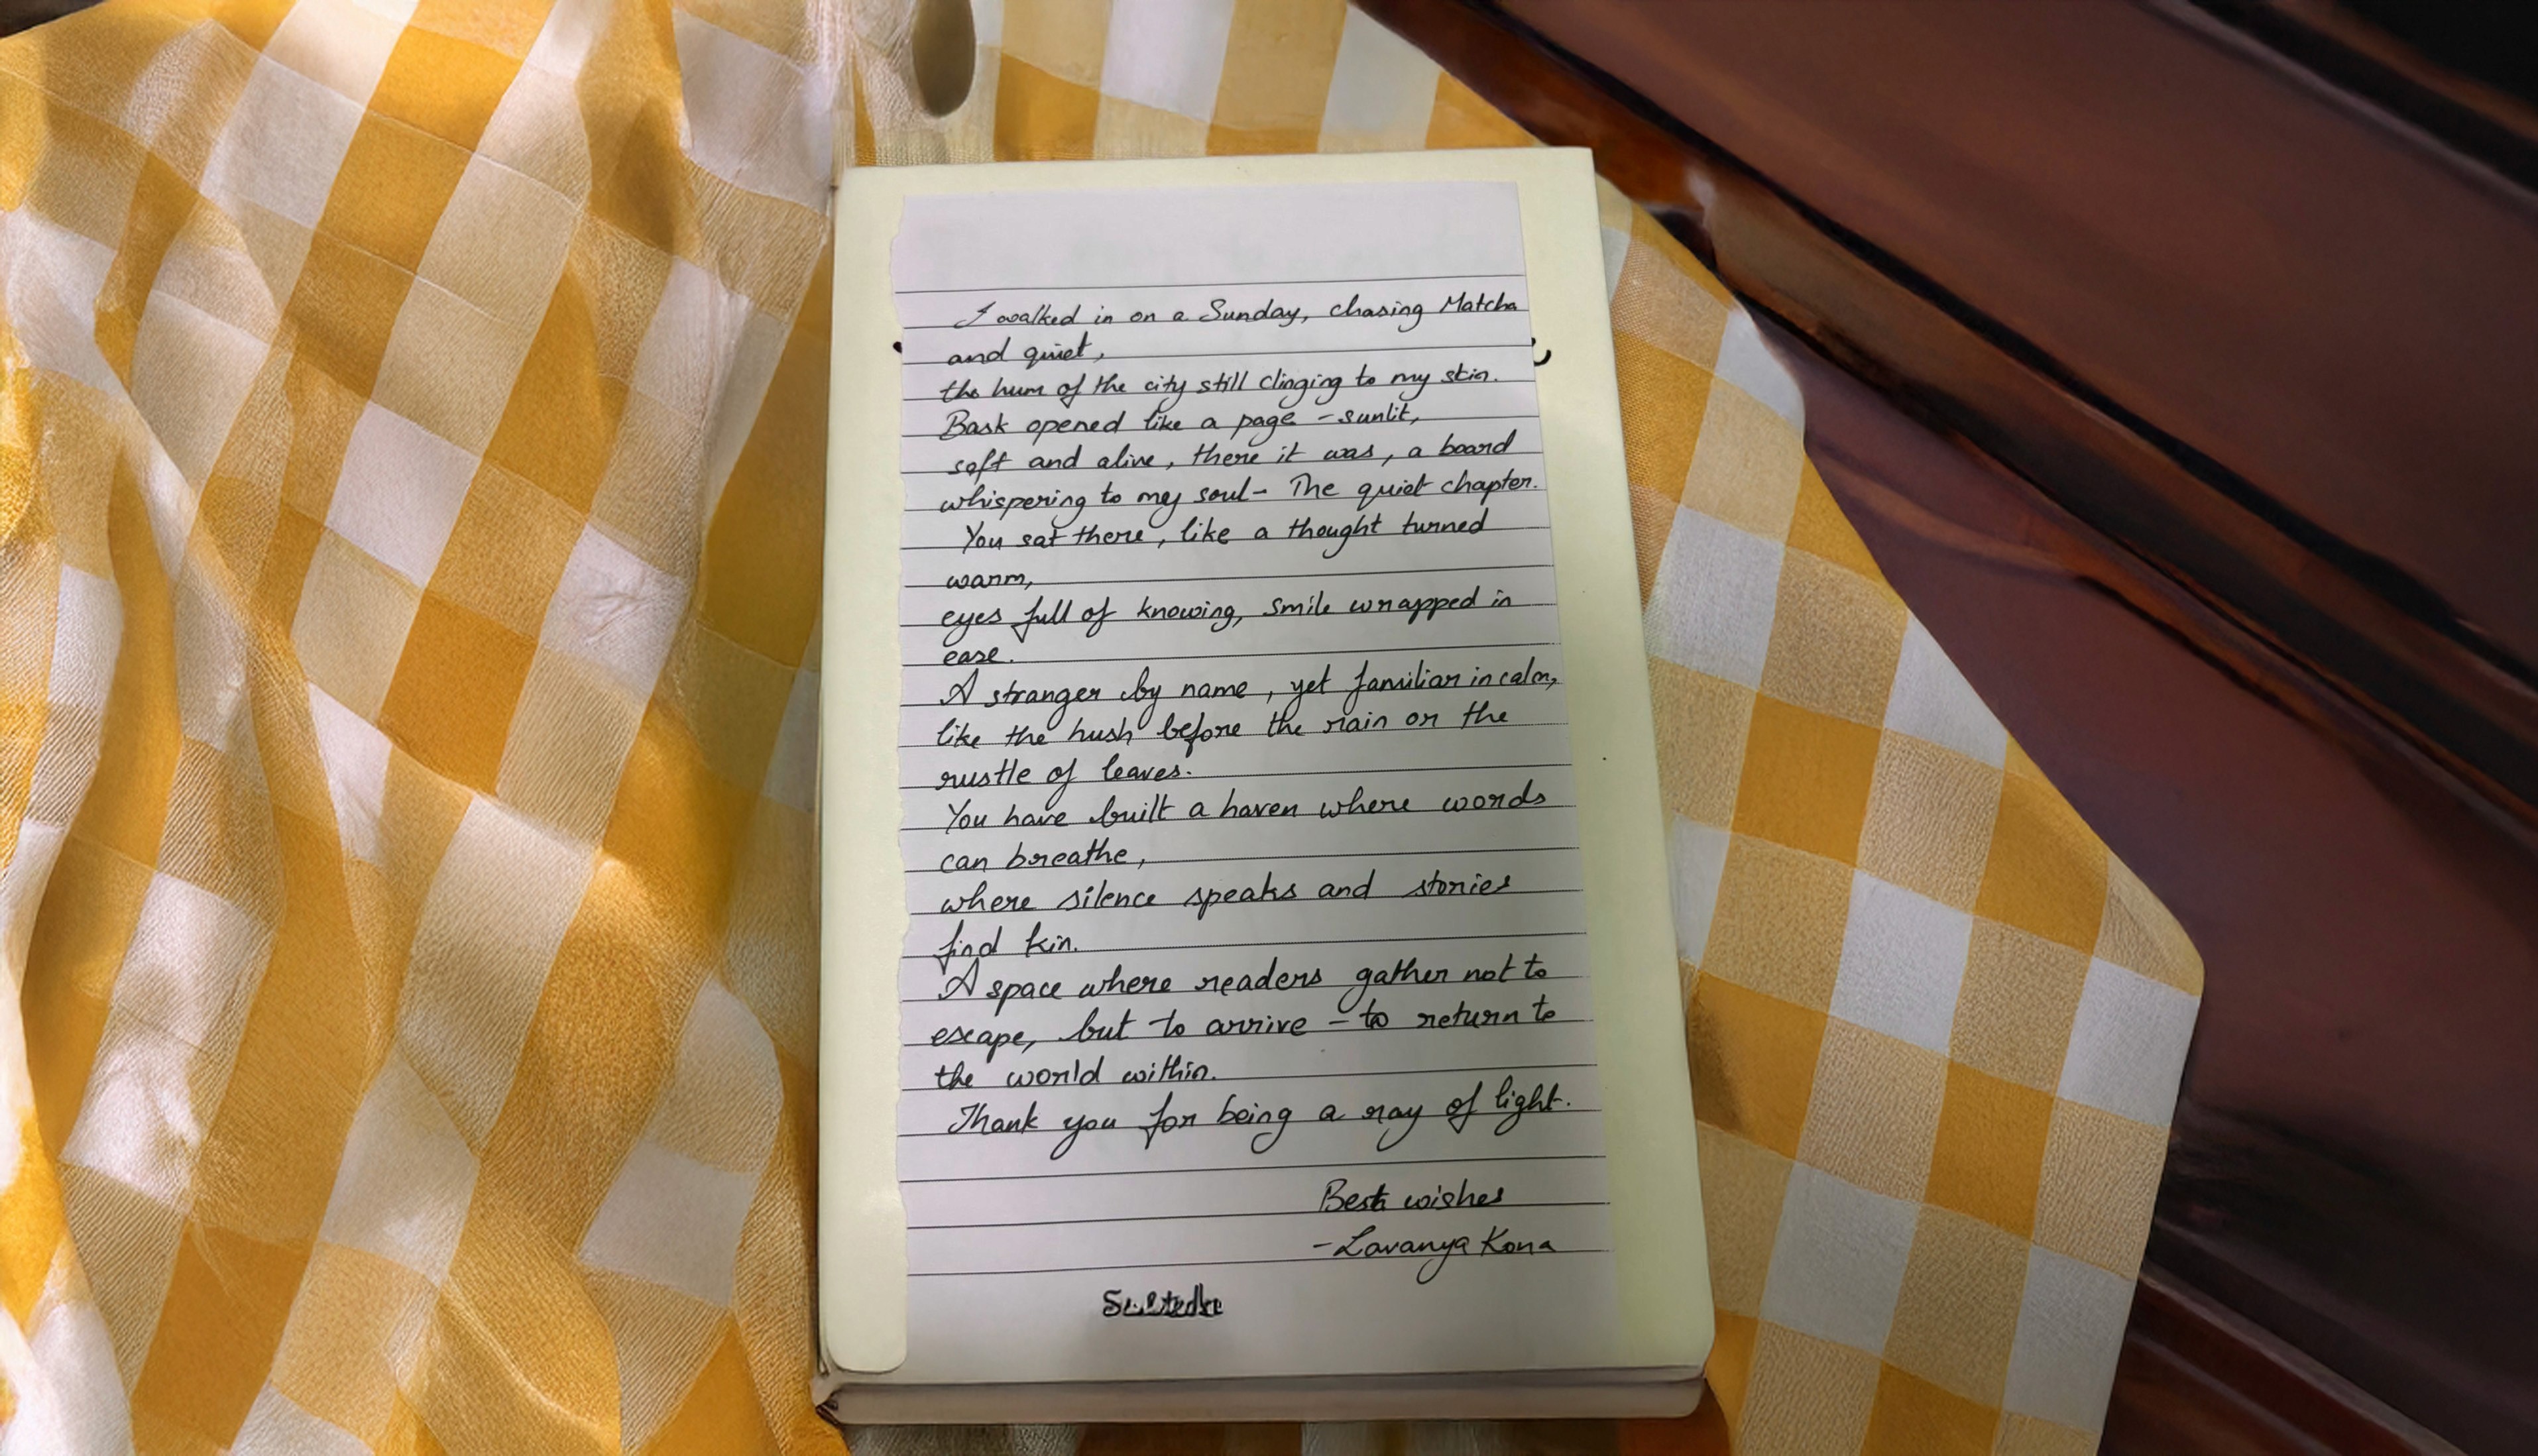 I walked in on a Sunday, chasing Matcha
and quiet,
the hum of the city still clinging to my skin.
Bask opened like a page - sunlit,
soft and alive, there it was, a board
whispering to my soul - The quiet chapter.
You sat there, like a thought turned
warm,
eyes full of knowing, smile wrapped in
ease.
A stranger by name, yet familiar in calm,
like the hush before the rain or the
rustle of leaves.
You have built a haven where words
can breathe,
where silence speaks and stories
find kin.
A space where readers gather not to
escape, but to arrive - to return to
the world within.
Thank you for being a ray of light.
Best wishes
- Lavanya Kona